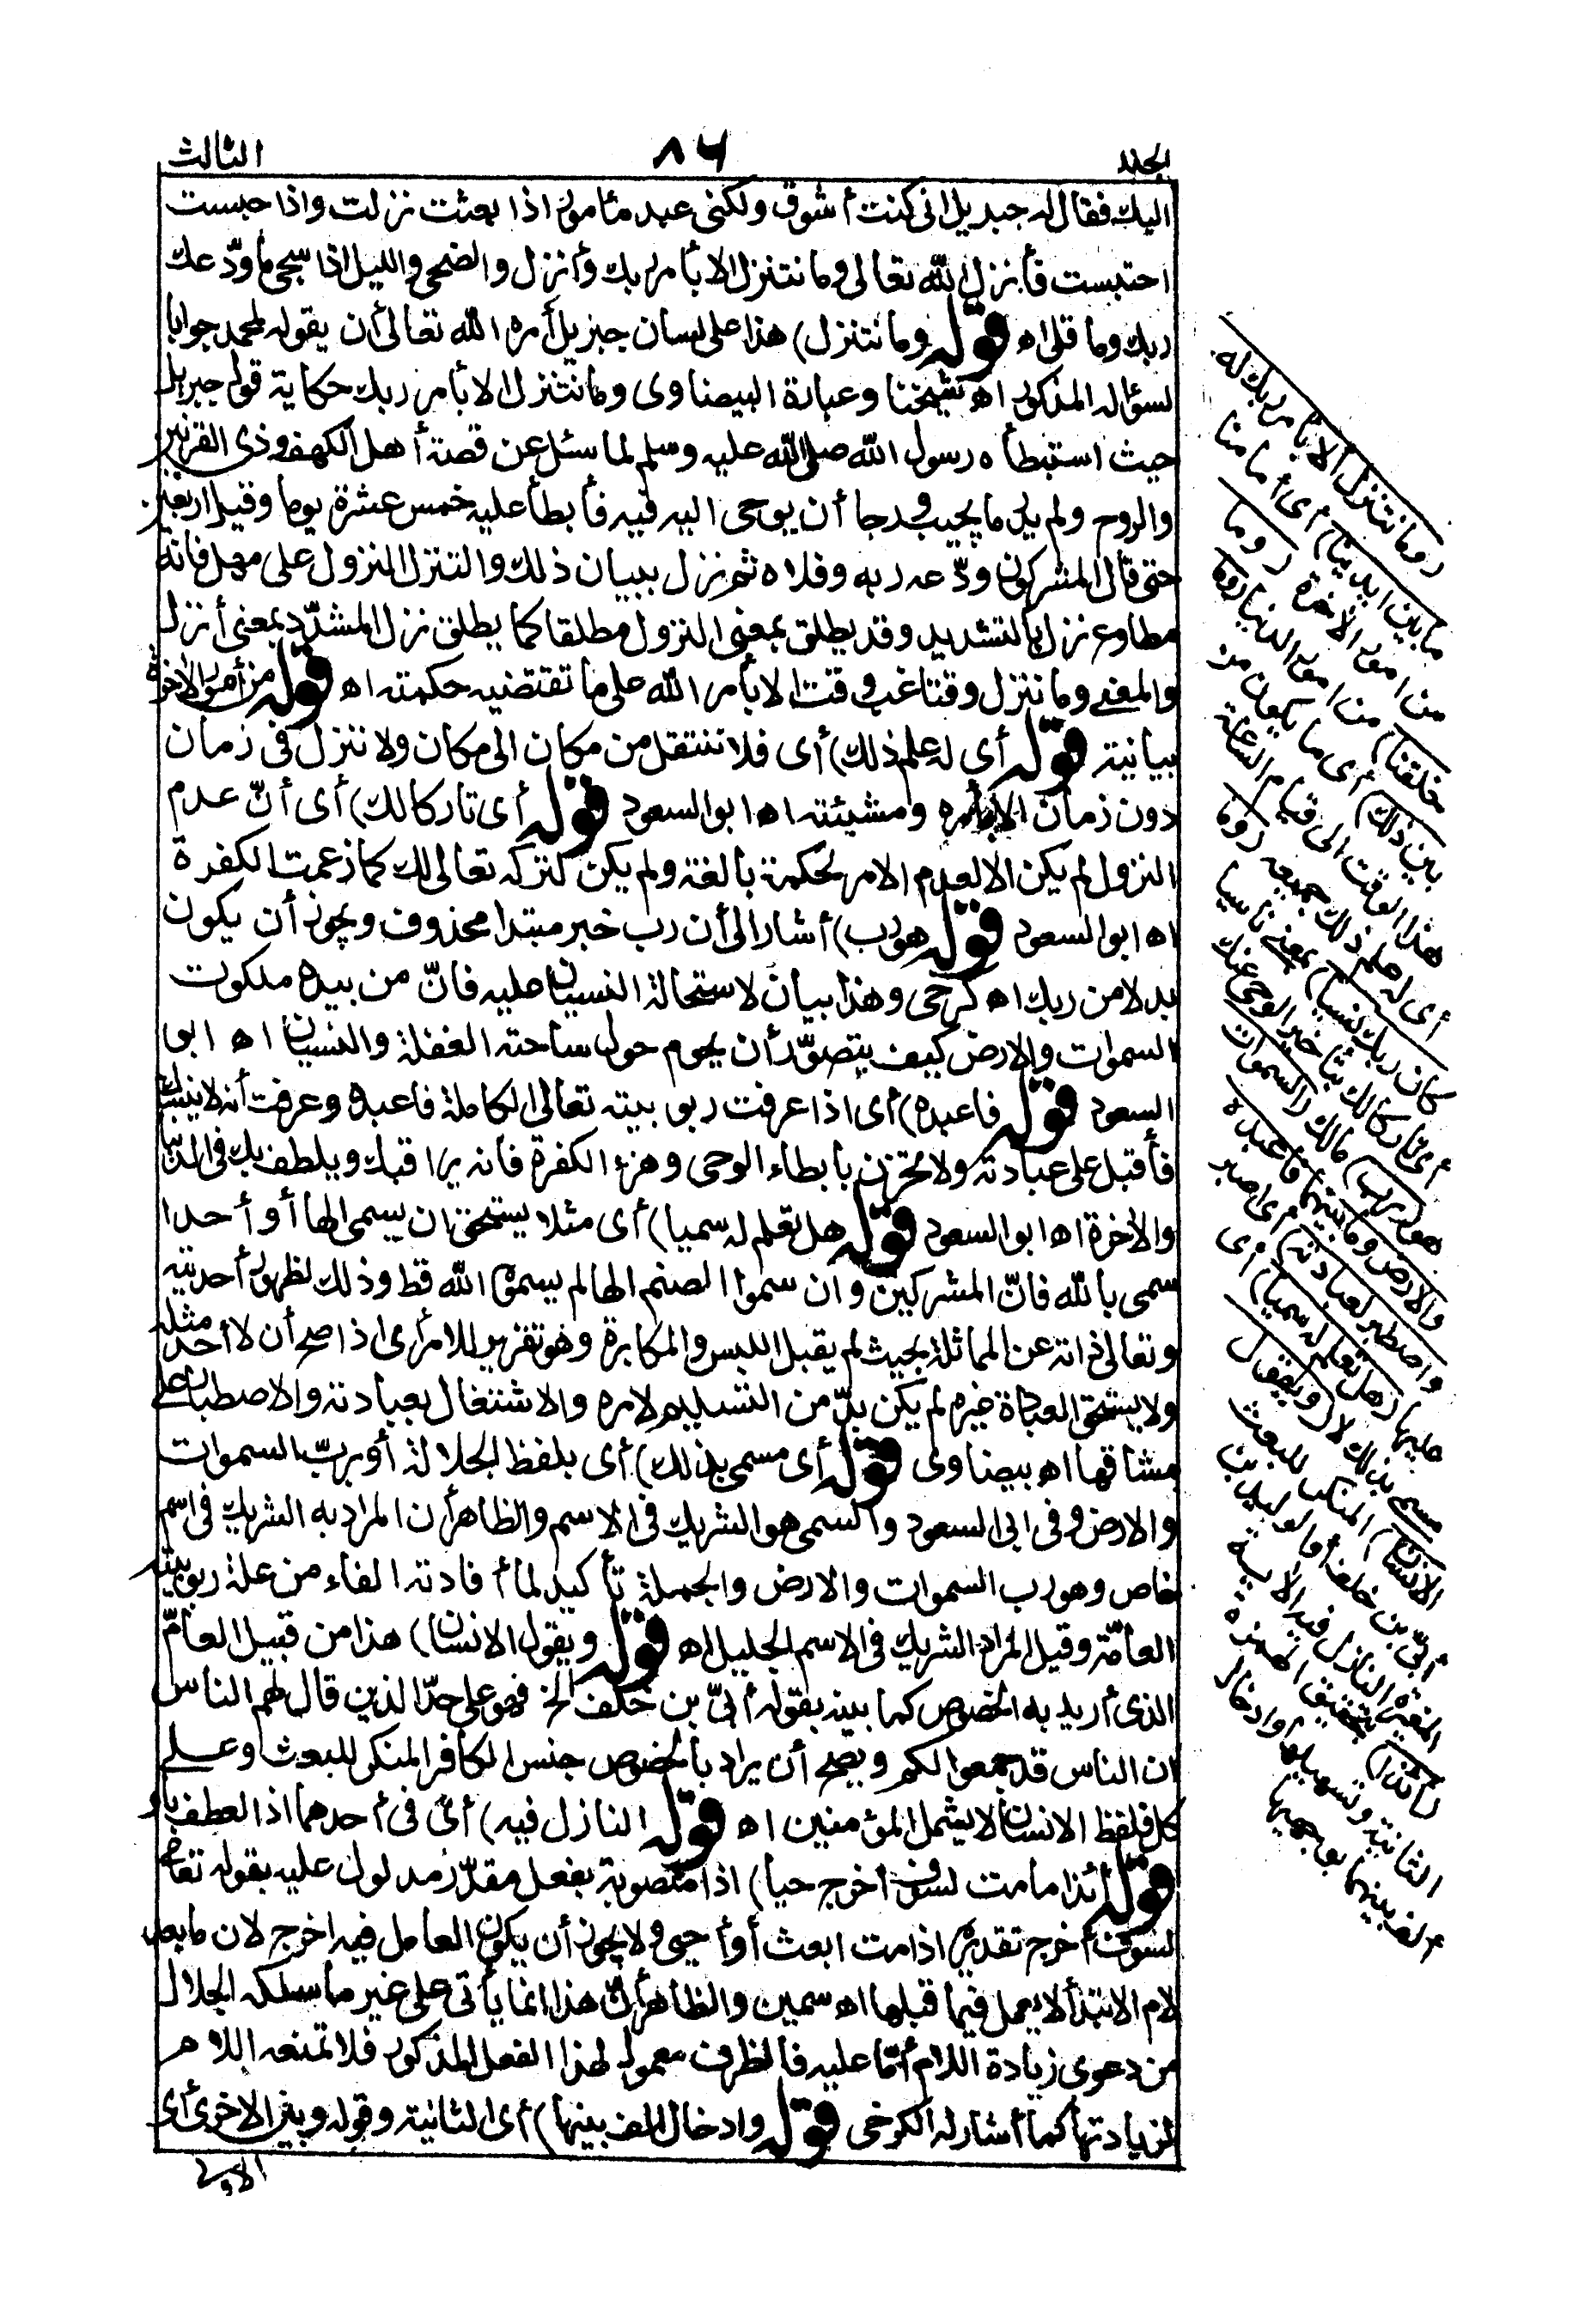 الجلد
٨٦
الثالث
اليك فقال له جبريل انى كنت أشوق ولكنى عبد مأمور اذا بعثت نزلت واذا حبست
احتبست فأنزل الله تعالى وما نتنزل الا بأمر ربك وأنزل والضحى والليل اذا سجى ما ودّعك
ربك وما قلى اه قوله وما نتنزل) هذا على لسان جبريل أمره الله تعالى أن يقوله لمحمد جوابا
لسؤاله المذكور اه شيخنا وعبارة البيضاوى وما نتنزل الا بأمر ربك حكاية قول جبريل
حيث استبطأه رسول الله صلى الله عليه وسلم لما سئل عن قصة أهل الكهف وذى القرنين
والروح ولم يدر ما يجيب ورجا أن يوحى اليه فيه فأبطأ عليه خمس عشرة يوما وقيل اربعين
حتى قال المشركون ودّعه ربه وقلاه ثم نزل ببيان ذلك والتنزل النزول على مهل فانه
مطاوع نزل بالتشديد وقد يطلق بمعنى النزول مطلقا كما يطلق نزل المشدّد بمعنى أنزل
والمعنى وما ننزل وقتا غب وقت الا بأمر الله على ما تقتضيه حكمته اه قوله من أمور الآخرة
بيانية قوله أى له علم ذلك) أى فلا ننتقل من مكان الى مكان ولا ننزل فى زمان
دون زمان الا بأمره ومشيئته اه ابو السعود قوله أى تاركا لك) أى أنّ عدم
النزول لم يكن الا لعدم الامر لحكمة بالغة ولم يكن لتركه تعالى لك كما زعمت الكفرة
اه ابو السعود قوله هو رب) أشار الى أن رب خبر مبتدا محذوف ويجوز أن يكون
بدلا من ربك اه كرخى وهذا بيان لاستحالة النسيان عليه فانّ من بيده ملكوت
السموات والارض كيف يتصوّر أن يحوم حول ساحته الغفلة والنسيان اه ابو
السعود قوله فاعبده) أى اذا عرفت ربوبيته تعالى الكاملة فاعبده وعرفت أنه لا ينساك
فأقبل على عبادته ولا تحزن بابطاء الوحى وهزء الكفرة فانه يراقبك ويلطف بك فى الدنيا
والآخرة اه ابو السعود قوله هل تعلم له سميا) أى مثلا يستحق ان يسمى الها أو أحدا
سمى بالله فانّ المشركين وان سموا الصنم الها لم يسموه الله قط وذلك لظهور أحديته
وتعالى ذاته عن المماثلة بحيث لم يقبل اللبس والمكابرة وهو تقرير للامر أى اذا صح أن لا أحد مثله
ولا يستحق العبادة غيره لم يكن بدّ من التسليم لامره والاشتغال بعبادته والاصطبار على
مشاقها اه بيضاوى قوله أى مسمى بذلك) أى بلفظ الجلالة أو برب السموات
والارض وفى ابى السعود والسمى هو الشريك فى الاسم والظاهر أن المراد به الشريك فى اسم
خاص وهو رب السموات والارض والجملة تأكيد لما أفادته الفاء من علة ربوبيته
العامّة وقيل المراد الشريك فى الاسم الجليل اه قوله ويقول الانسان) هذا من قبيل العامّ
الذى أريد به الخصوص كما بينه بقوله أبىّ بن خلف الخ فهو على حدّ الذين قال لهم الناس
ان الناس قد جمعوا لكم ويصح أن يراد بالخصوص جنس الكافر المنكر للبعث وعلى
كل فلفظ الانسان لا يشمل المؤمنين اه قوله النازل فيه) أى فى أحدهما اذ العطف بأو
قوله أئذا ما مت لسوف أخرج حيا) اذا منصوبة بفعل مقدّر مدلول عليه بقوله تعالى
لسوف أخرج تقديره اذا مت ابعث أو أحيى ولا يجوز أن يكون العامل فيه اخرج لان ما بعد
لام الابتدأ لا يعمل فيما قبلها اه سمين والظاهر أنّ هذا انما يأتى على غير ما سلكه الجلال
من دعوى زيادة اللام أمّا عليه فالظرف معمول لهذا الفعل المذكور فلا تمنعه اللام
لزيادتها كما أشار له الكرخى قوله وادخال الف بينها) أى الثانية وقوله وبين الاخرى أى
الاولى
(وما نتنزل الا بأمر ربك له
ما بين ايدينا) أى أمامنا
من امور الآخرة (وما
خلفنا) من امور الدنيا (وما
بين ذلك) أى ما يكون من
هذا الوقت الى قيام الساعة
أى له علم ذلك جميعه (وما
كان ربك نسيا) بمعنى ناسيا
أى تاركا لك بتأخير الوحى عنك
هو (رب) مالك (السموات
والارض وما بينهما فاعبده
واصطبر لعبادته) أى اصبر
عليها (هل تعلم له سميا) أى
مسمى بذلك لا (ويقول
الانسان) المنكر للبعث
أبىّ بن خلف أو الوليد بن
المغيرة النازل فيه الآية
(أئذا) بتحقيق الهمزة
الثانية وتسهيلها وادخال
ألف بينهما بوجهيها